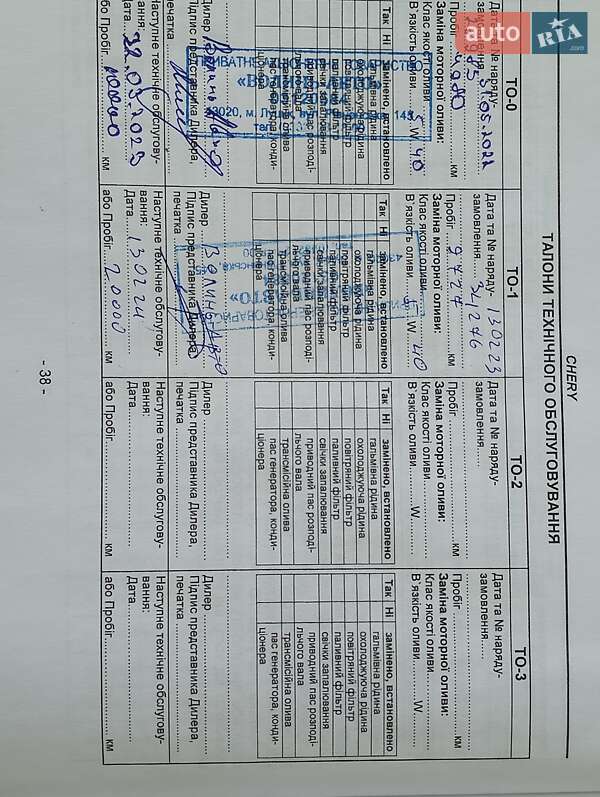 auto RIA.com
CHERY
ТАЛОНИ ТЕХНІЧНОГО ОБСЛУГОВУВАННЯ
ТО-0
Дата та № наряду-
замовлення
Пробіг км
Заміна моторної оливи:
Клас якості оливи
В'язкість оливи W 40
Так Ні замінено, встановлено
гальмівна рідина
охолоджуюча рідина
повітряний фільтр
паливний фільтр
свічки запалювання
приводний пас розподі-
льчого вала
трансмісійна олива
пас генератора, конди-
ціонера
Дилер
Підпис представника Дилера,
печатка
Наступне технічне обслугову-
вання:
Дата
або Пробіг 10000 км
ТО-1
Дата та № наряду- 130223
замовлення 34276
Пробіг км
Заміна моторної оливи:
Клас якості оливи
В'язкість оливи W 40
Так Ні замінено, встановлено
гальмівна рідина
охолоджуюча рідина
повітряний фільтр
паливний фільтр
свічки запалювання
приводний пас розподі-
льчого вала
трансмісійна олива
пас генератора, конди-
ціонера
Дилер Волинь-Авто
Підпис представника Дилера,
печатка
Наступне технічне обслугову-
вання:
Дата 130224
або Пробіг 20000 км
ТО-2
Дата та № наряду-
замовлення
Пробіг км
Заміна моторної оливи:
Клас якості оливи
В'язкість оливи W
Так Ні замінено, встановлено
гальмівна рідина
охолоджуюча рідина
повітряний фільтр
паливний фільтр
свічки запалювання
приводний пас розподі-
льчого вала
трансмісійна олива
пас генератора, конди-
ціонера
Дилер
Підпис представника Дилера,
печатка
Наступне технічне обслугову-
вання:
Дата
або Пробіг км
ТО-3
Дата та № наряду-
замовлення
Пробіг км
Заміна моторної оливи:
Клас якості оливи
В'язкість оливи W
Так Ні замінено, встановлено
гальмівна рідина
охолоджуюча рідина
повітряний фільтр
паливний фільтр
свічки запалювання
приводний пас розподі-
льчого вала
трансмісійна олива
пас генератора, конди-
ціонера
Дилер
Підпис представника Дилера,
печатка
Наступне технічне обслугову-
вання:
Дата
або Пробіг км
- 38 -